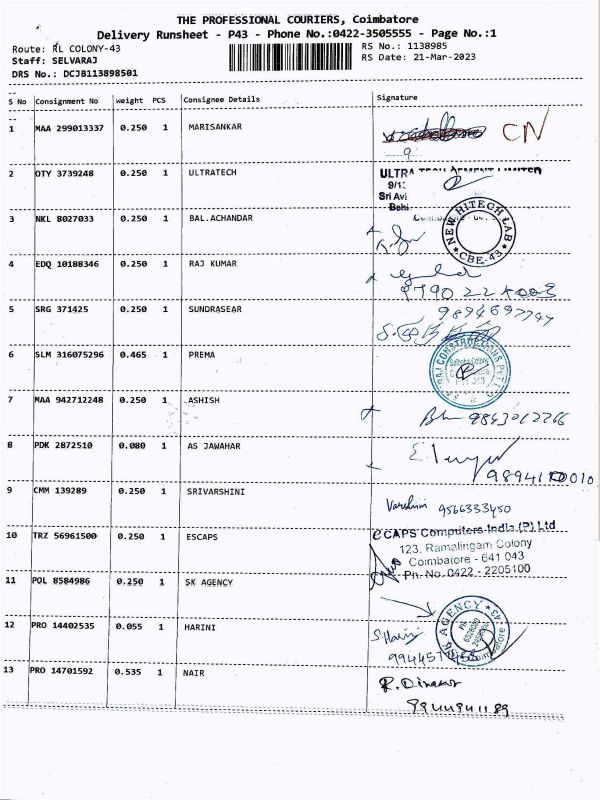 THE PROFESSIONAL COURIERS, Coimbatore
Delivery Runsheet - P43 - Phone No.:0422-3505555 - Page No.:1
Route: RL COLONY-43
RS No.: 1138985
Staff: SELVARAJ
RS Date: 21-Mar-2023
DRS No.: DCJB113898501
S No Consignment No Weight PCS Consignee Details Signature
1 MAA 299013337 0.250 1 MARISANKAR CN
2 OTY 3739248 0.250 1 ULTRATECH ULTRA
Sri Avi
3 NKL 8027033 0.250 1 BAL.ACHANDAR NEW HITECH LAB CBE-43
4 EDQ 10188346 0.250 1 RAJ KUMAR
5 SRG 371425 0.250 1 SUNDRASEAR
6 SLM 316075296 0.465 1 PREMA
7 MAA 942712248 0.250 1 ASHISH
8 PDK 2872510 0.080 1 AS JAWAHAR
9 CMM 139289 0.250 1 SRIVARSHINI Varshini 9566333450
10 TRZ 56961500 0.250 1 ESCAPS CAPS Computers India (P) Ltd
123, Ramalingam Colony
Coimbatore - 641 043
Ph. No. 0422 - 2205100
11 POL 8584986 0.250 1 SK AGENCY
12 PRO 14402535 0.055 1 HARINI AGENCY
13 PRO 14701592 0.535 1 NAIR R. Dinakar
9944941189